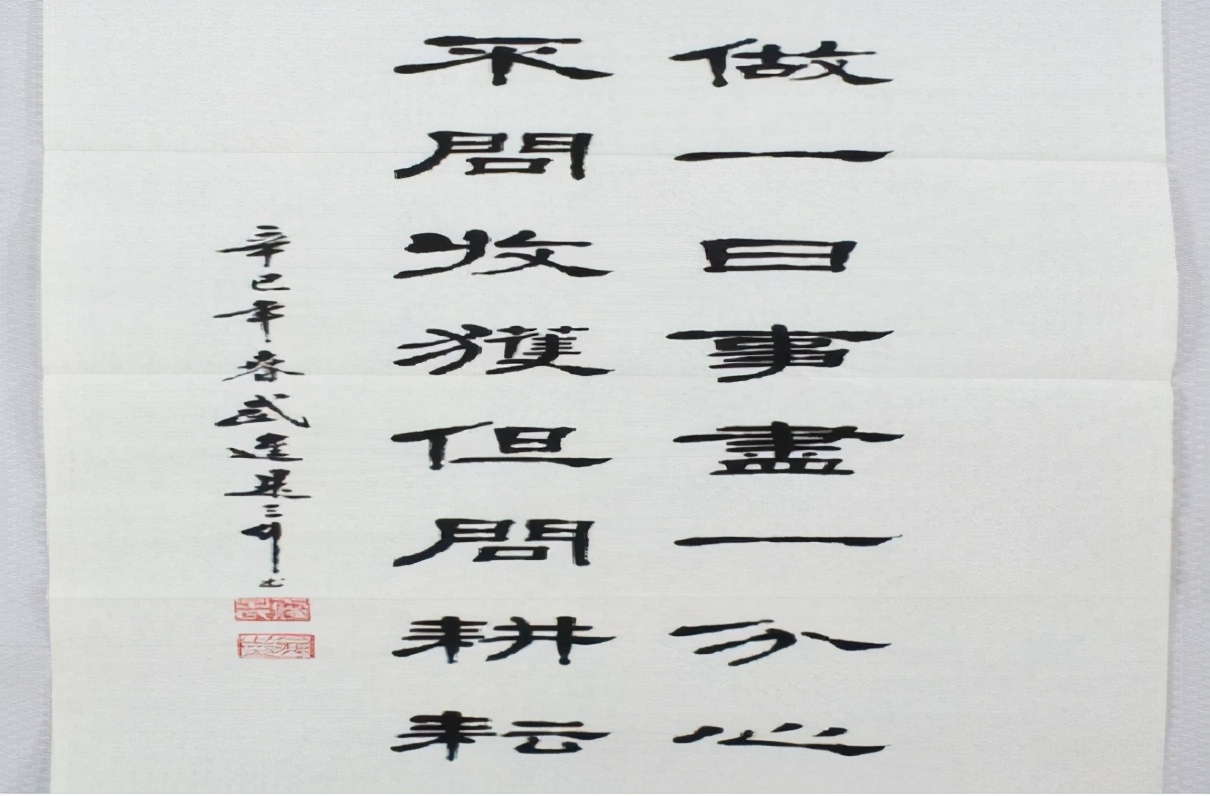 做一日事盡一分心
不問收獲但問耕耘
辛巳年春武進